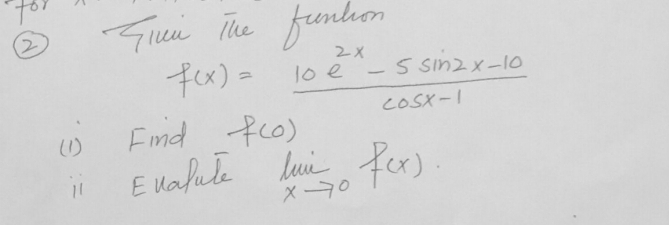 for x
② Given The function
f(x) = 10 e^{2x} - 5 sin2x - 10
cosx - 1
(i) Find f(0)
ii Evaluate lim x→0 f(x).